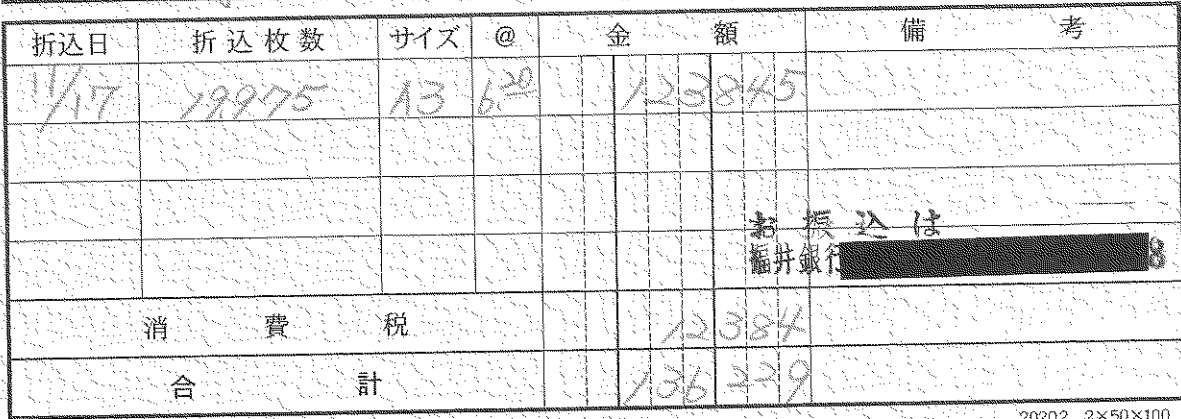 折込日 折込枚数 サイズ @ 金額 備考
11/17 19975 A3 6.20 123845
お振込は
福井銀行 8
消費税 12384
合計 136229
20202 2×50×100